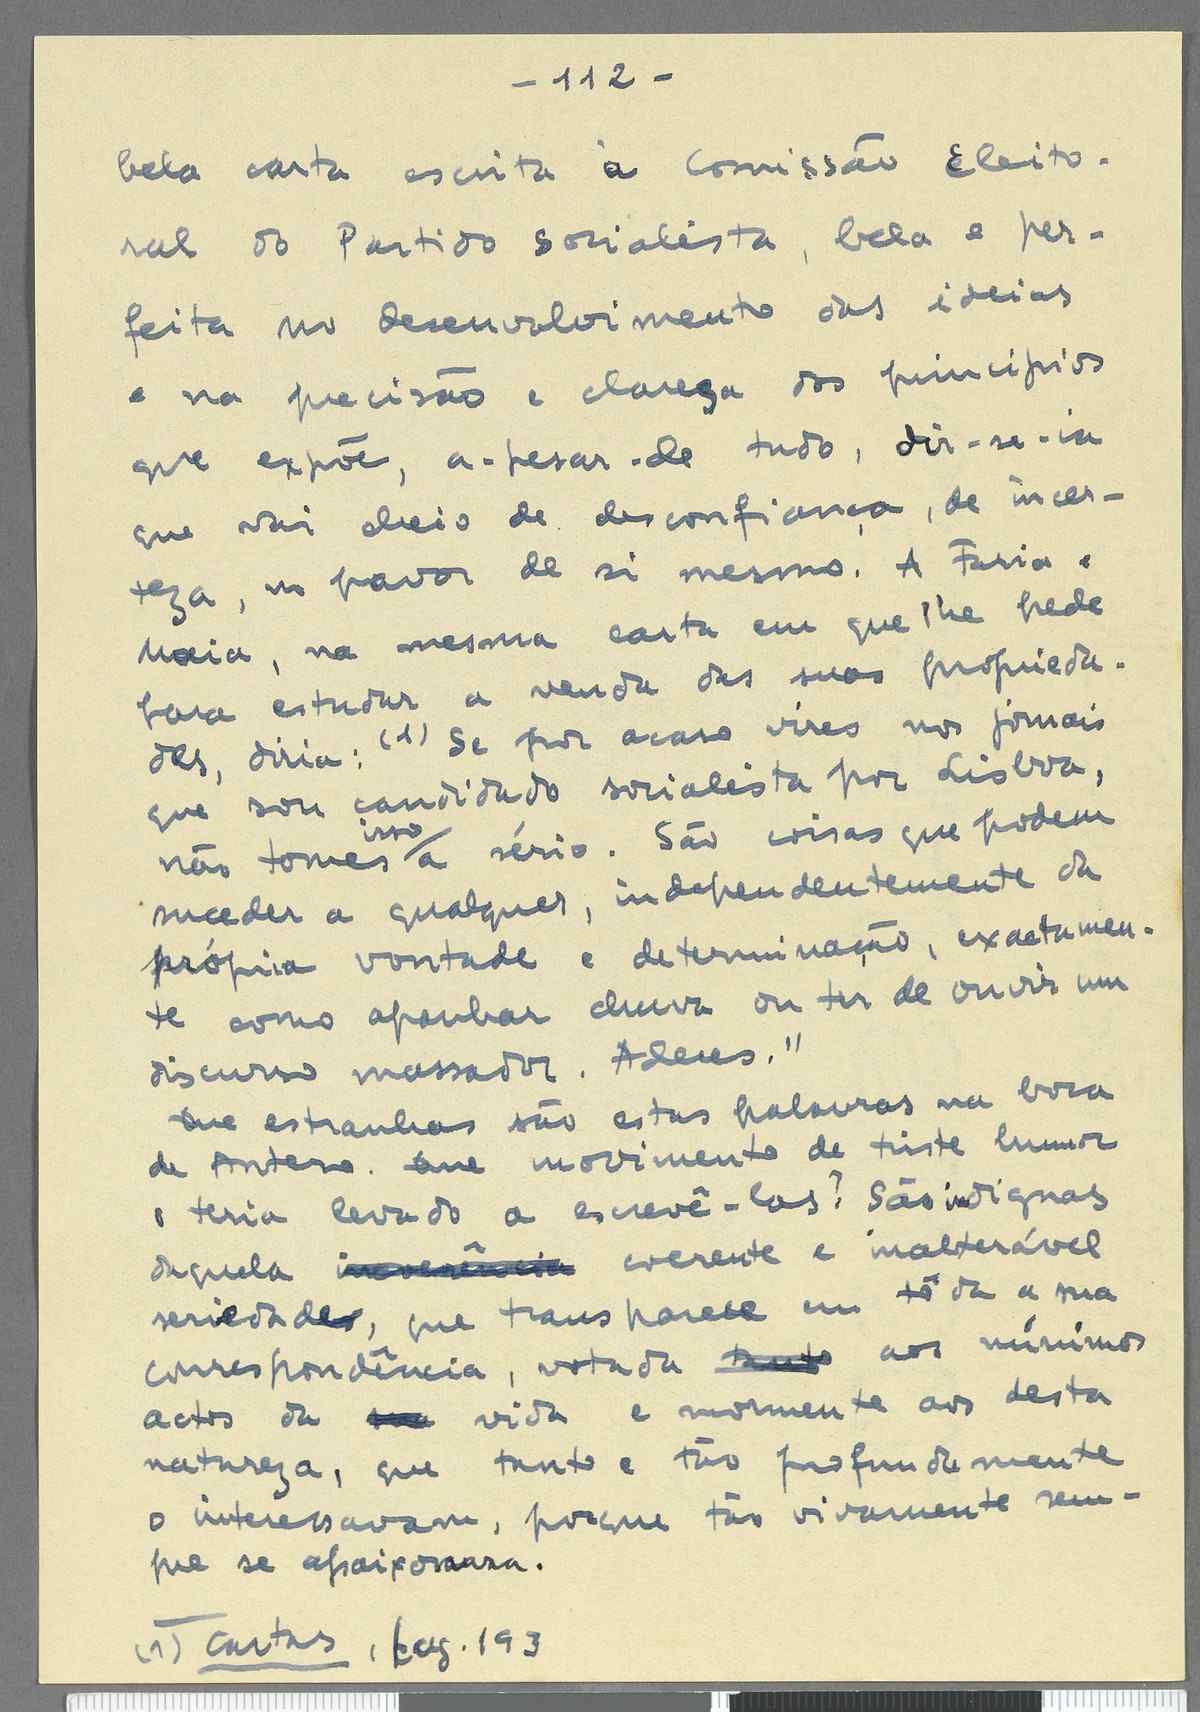 - 112 -
bela carta escrita à Comissão Eleito-
ral do Partido Socialista, bela e per-
feita no desenvolvimento das ideias
e na precisão e clareza dos princípios
que expõe, a-pesar-de tudo, dir-se-ia
que vai cheio de desconfiança, de incer-
teza, no pavor de si mesmo. A Faria e
Maia, na mesma carta em que lhe pede
para estudar a venda das suas proprieda-
des, diria: (1) Se por acaso vires nos jornais
que sou candidado socialista por Lisboa,
não tomes isso a sério. São coisas que podem
suceder a qualquer, independentemente da
própria vontade e determinação, exactamen-
te como apanhar chuva ou ter de ouvir um
discurso massador. Adeus."
Que estranhas são estas palavras na boca
de Antero. Que movimento de triste humor
o teria levado a escrevê-las? São indignas
daquela coerente e inalterável
seriedade, que transparece em tôda a sua
correspondência, votada aos mínimos
actos da vida e mormente aos desta
natureza, que tanto e tão profundamente
o interessavam, porque tão vivamente sem-
pre se apaixonara.
(1) Cartas, pag. 193